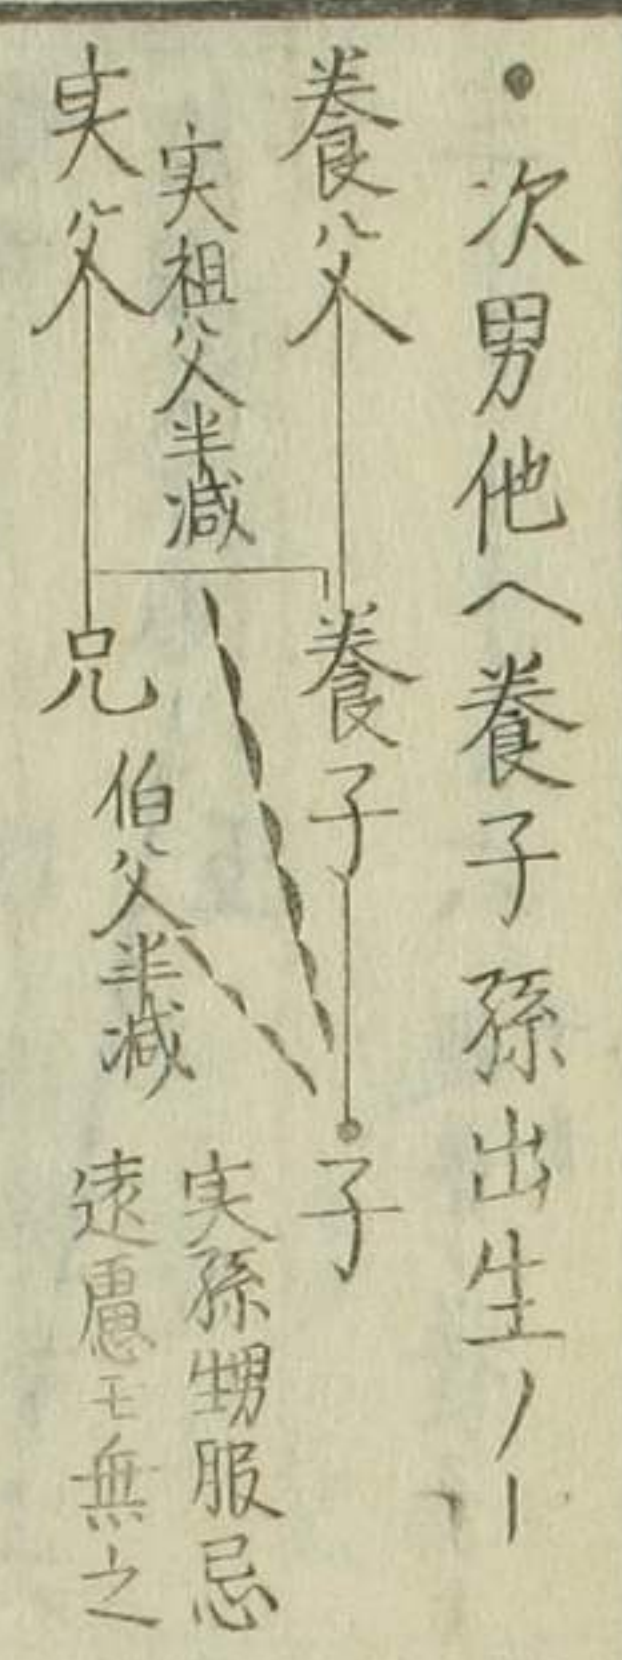 ・次男他ヘ養子孫出生ノヿ
養父
養子
子
実祖父半減
実父
兄
伯父半減
実孫甥服忌
遠慮モ無之